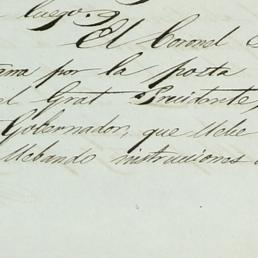 luego.
El Coronel
ana por la posta
el Gral Presidente,
Gobernador, que debe
llebando instruciones